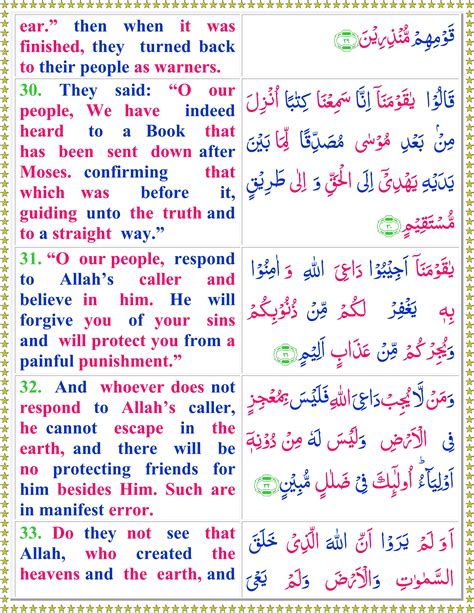 ear.” then when it was
finished, they turned back
to their people as warners.
قَوْمِهِمْ مُّنْذِرِيْنَ ﴿۲۹﴾
30. They said: “O our
people, We have indeed
heard to a Book that
has been sent down after
Moses. confirming that
which was before it,
guiding unto the truth and
to a straight way.”
قَالُوْا يٰقَوْمَنَاۤ اِنَّا سَمِعْنَا كِتٰبًا اُنْزِلَ
مِنْۢ بَعْدِ مُوْسٰى مُصَدِّقًا لِّمَا بَيْنَ
يَدَيْهِ يَهْدِيْۤ اِلَى الْحَقِّ وَ اِلٰى طَرِيْقٍ
مُّسْتَقِيْمٍ ﴿۳۰﴾
31. “O our people, respond
to Allah’s caller and
believe in him. He will
forgive you of your sins
and will protect you from a
painful punishment.”
يٰقَوْمَنَاۤ اَجِيْبُوْا دَاعِيَ اللّٰهِ وَ اٰمِنُوْا
بِهٖ يَغْفِرْ لَكُمْ مِّنْ ذُنُوْبِكُمْ
وَيُجِرْكُمْ مِّنْ عَذَابٍ اَلِيْمٍ ﴿۳۱﴾
32. And whoever does not
respond to Allah’s caller,
he cannot escape in the
earth, and there will be
no protecting friends for
him besides Him. Such are
in manifest error.
وَمَنْ لَّا يُجِبْ دَاعِيَ اللّٰهِ فَلَيْسَ بِمُعْجِزٍ
فِى الْاَرْضِ وَلَيْسَ لَهٗ مِنْ دُوْنِهٖۤ
اَوْلِيَآءُ ؕ اُولٰٓئِكَ فِيْ ضَلٰلٍ مُّبِيْنٍ ﴿۳۲﴾
33. Do they not see that
Allah, who created the
heavens and the earth, and
اَوَ لَمْ يَرَوْا اَنَّ اللّٰهَ الَّذِيْ خَلَقَ
السَّمٰوٰتِ وَالْاَرْضَ وَ لَمْ يَعْيَ